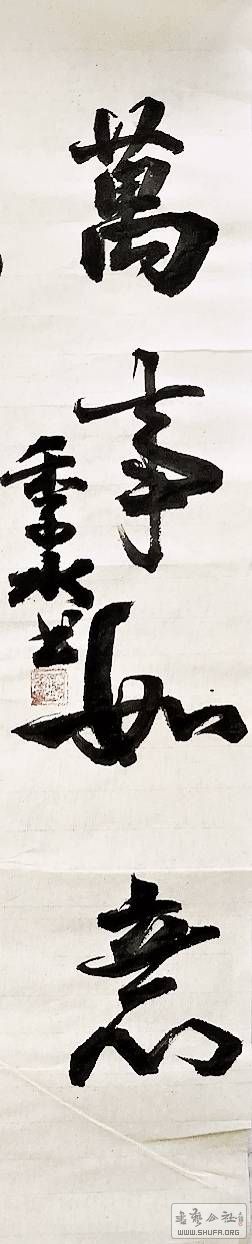 萬事如意
水书
书艺公社
WWW.SHUFA.ORG